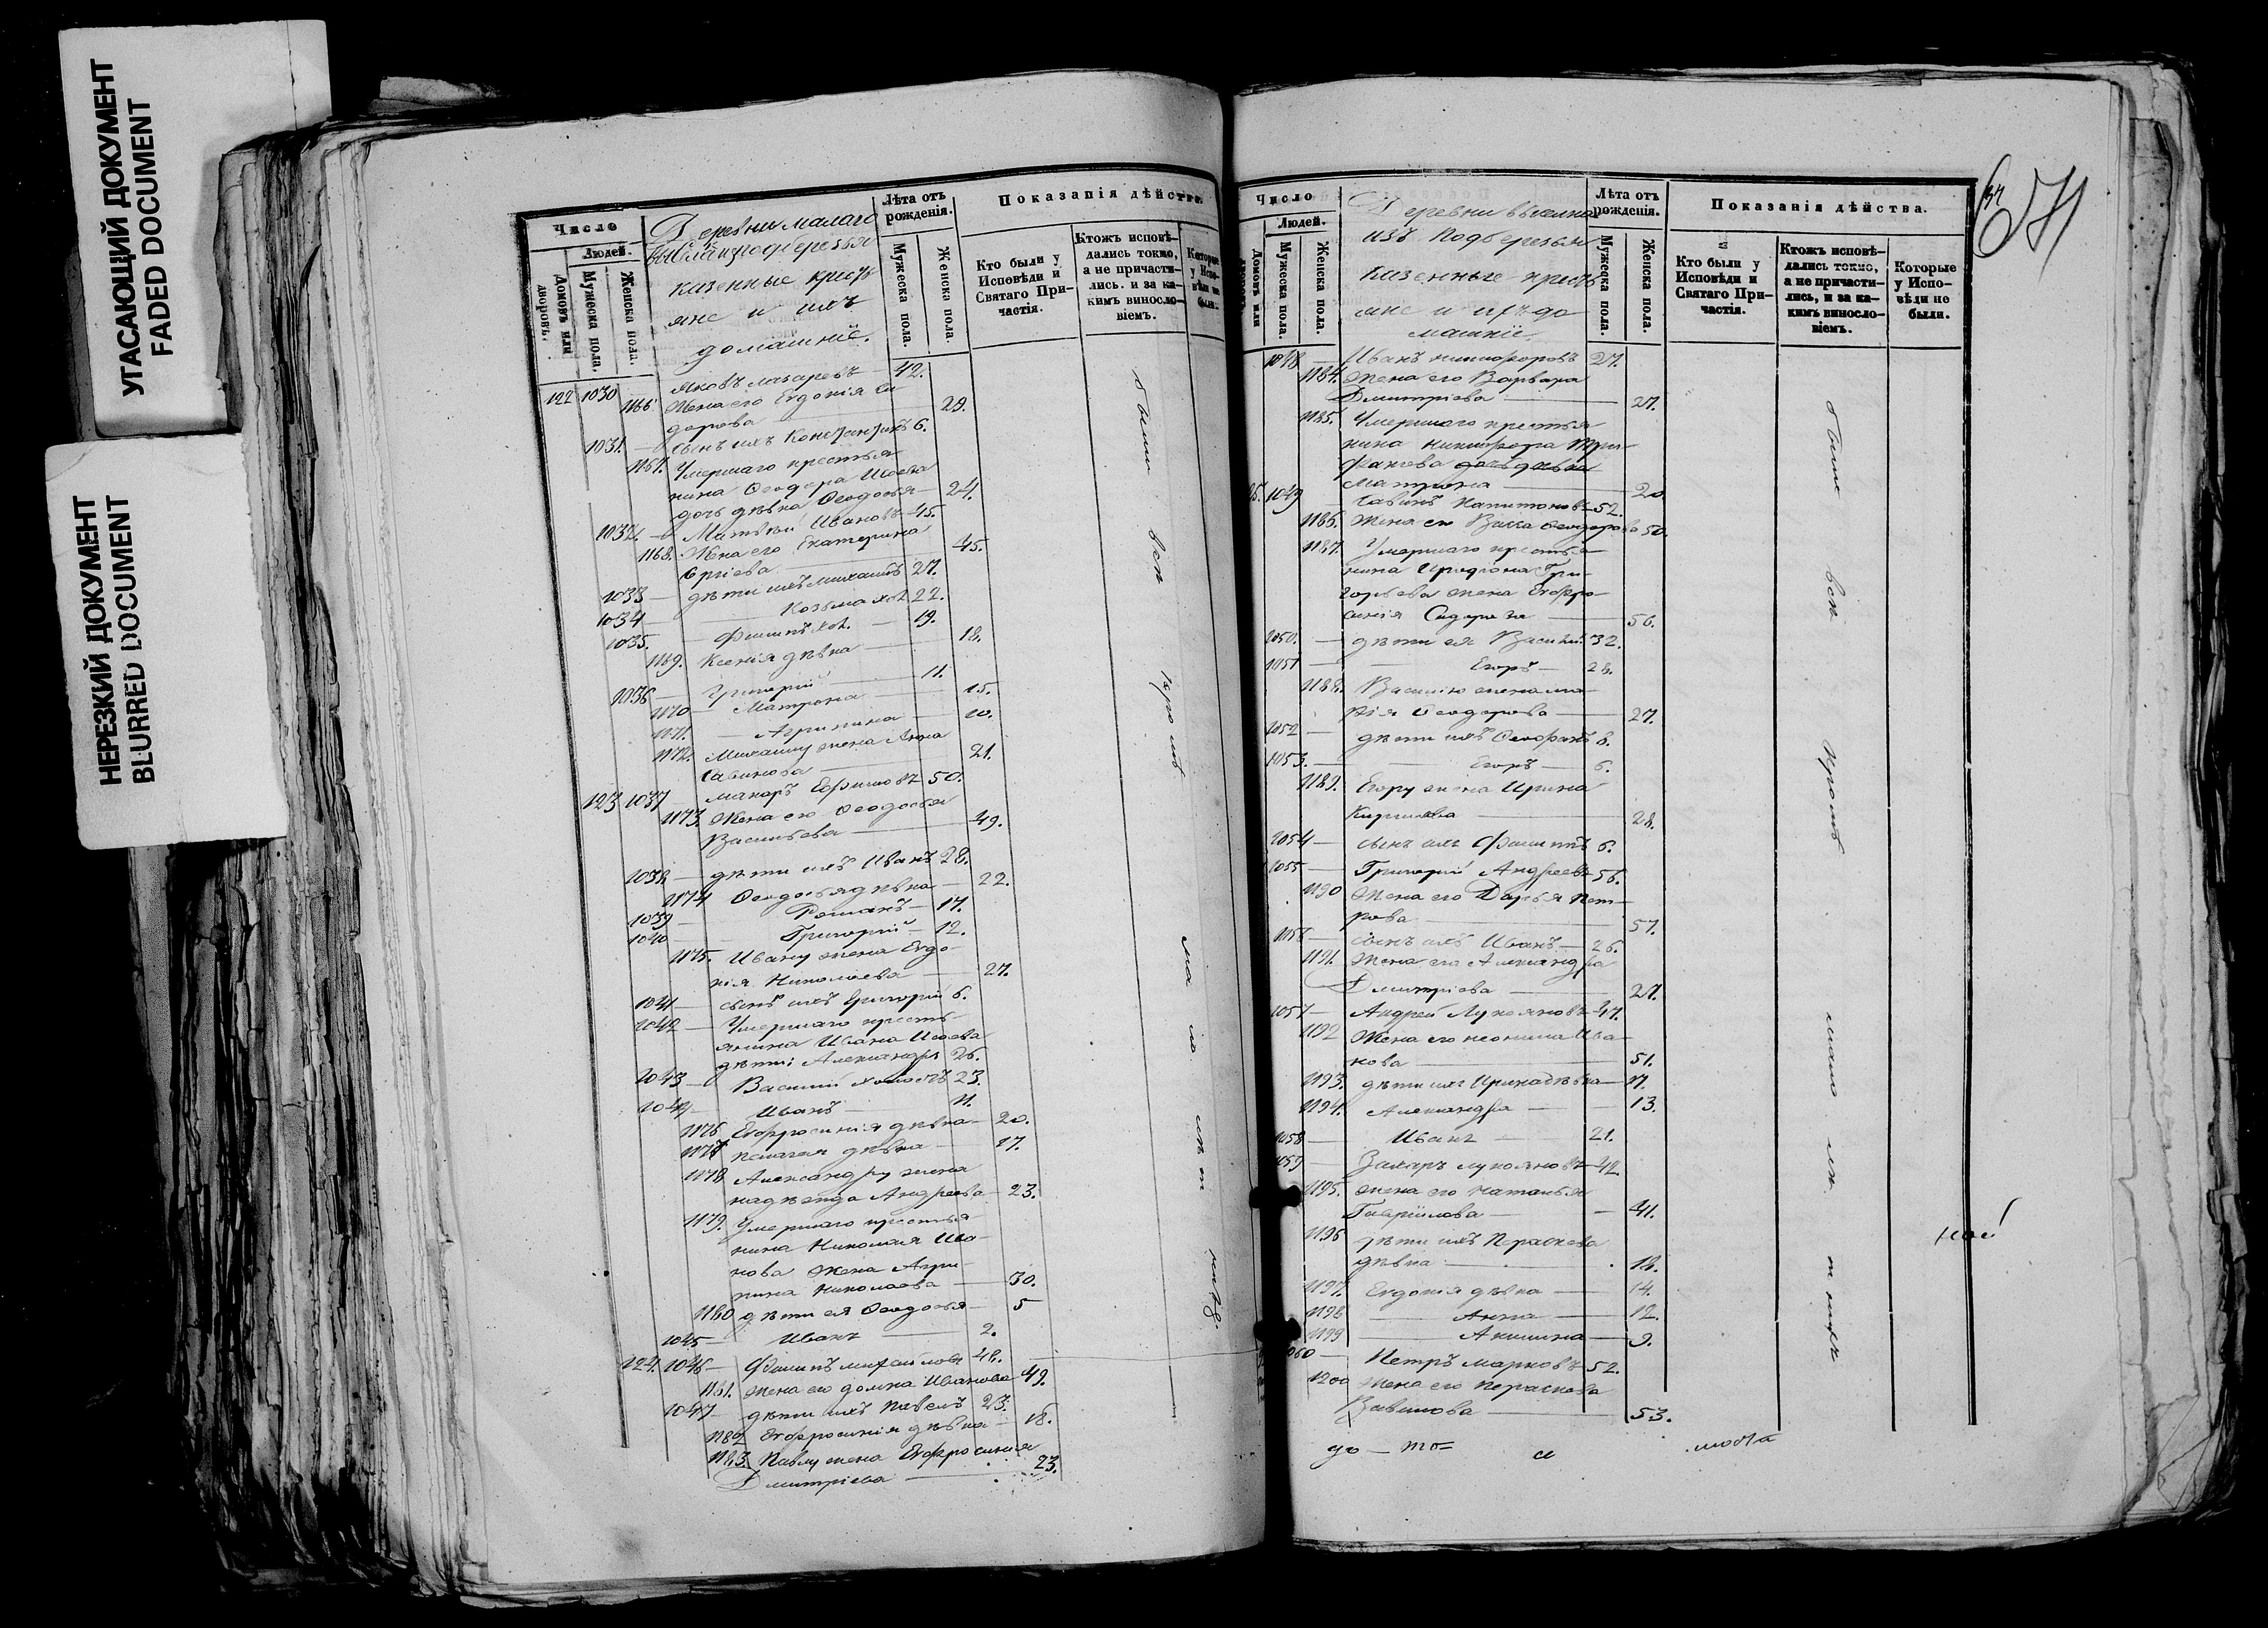 УГАСАЮЩИЙ ДОКУМЕНТ
FADED DOCUMENT
НЕРЕЗКИЙ ДОКУМЕНТ
BLURRED DOCUMENT
Число
Людей.
Домовъ или дворовъ.
Мужеска пола.
Женска пола.
Деревни малаго
казенные кресть
яне и ихъ
домашніе.
Лѣта отъ рожденія.
Мужеска пола.
Женска пола.
Показанія дѣйства.
Кто были у Исповѣди и Святаго Причастія.
Ктожъ исповѣдались токмо, а не причастились. и за какимъ винословіемъ.
Которые у Исповѣди не были.
122 1030 Яковъ Лазаревъ 42.
1166. Жена его Евдокія Си
дорова 29.
1031. Сынъ ихъ Константинъ 6.
1167. Умершаго крестья
нина Ѳеодора Исаева
дочь дѣвка Ѳеодосья 24.
1032. Матвѣй Ивановъ 45.
1168. Жена его Екатерина
45.
1033 дѣти ихъ Михаилъ 27.
1034 Козьма хол. 22.
1035. Филипъ хол. 19.
1169. Ксенія дѣвка 18.
1036 Григорій 11.
1170 Матрона 15.
1171. Агрипина 10.
1172. Михаилу жена Анна
Савинова 21.
123 1037 Макаръ Ефимовъ 50.
1173. Жена его Ѳеодосья
Васильева 49.
1038 дѣти ихъ Иванъ 28.
1174 Ѳеодосья дѣвка 22.
1039 Романъ 17.
1040 Григорій 12.
1175. Ивану жена Евдо
кія Николаева 27.
1041 сынъ ихъ Григорій 6.
1042 Умершаго кресть
янина Ивана Исаева
дѣти: Александръ 26.
1043 Василій холостъ 23.
1044 Иванъ 11.
1176 Евфросинія дѣвка 20.
1177 Пелагея дѣвка 17.
1178 Александру жена
Надежда Андреева 23.
1179. Умершаго крестья
нина Николая Ива
нова жена Агри
пина Николаева 30.
1180 дѣти ея Ѳеодосья 5
1045 Иванъ 2.
124. 1046 Филипъ Михайловъ 48.
1181. Жена его Домна Иванова 49.
1047 дѣти ихъ Павелъ 23.
1182 Евфросинія дѣвка 18.
1183. Павлу жена Евфросинія
Дмитріева 23.
были
всѣ
Число
Людей.
Домовъ или
Мужеска пола.
Женска пола.
Деревни выселка
изъ Подберезья
казенные кресть
яне и ихъ до
машніе.
Лѣта отъ рожденія.
Мужеска пола.
Женска пола.
Показанія дѣйства.
Кто были у Исповѣди и Святаго Причастія.
Ктожъ исповѣдались токмо, а не причастились, и за какимъ винословіемъ.
Которые у Исповѣди не были.
1048 Иванъ Никифоровъ 27.
1184. Жена его Варвара
Дмитріева 27.
1185. Умершаго крестья
нина Никифора Три
фанова дочь дѣвка
Матрона 20
1049 Савинъ Капитоновъ 52.
1186. Жена его Васса Ѳеодорова 50.
1187. Умершаго крестья
нина Иродіона Гри
горьева жена Евфро
синія Сидорова 56.
1050. дѣти ея Василій 32.
1051 Егоръ 28.
1188. Василію жена Ма
рія Ѳеодорова 27.
1052 дѣти ихъ Ѳеофанъ 8.
1053. Егоръ 6.
1189. Егору жена Ирина
Кирилова 28.
1054 сынъ ихъ Филипъ 6.
1055 Григорій Андреевъ 56.
1190 Жена его Дарья Пет
рова 57.
1056 сынъ ихъ Иванъ 26.
1191. Жена его Александра
Дмитріева 27.
1057 Андрей Лукояновъ 47.
1192 Жена его Неонила Ива
нова 51.
1193. дѣти ихъ Ирина дѣвка 17.
1194. Александра 13.
1058 Иванъ 21.
1059 Захаръ Лукояновъ 42
1195. Жена его Наталья
Гаврилова 41.
1196 дѣти ихъ Параскева
дѣвка 18.
1197. Евдокія дѣвка 14.
1198 Анна 12.
1199 Акилина 9.
1060 Петръ Марковъ 52.
1200 Жена его Параскева
Вавилова 53.
были
всѣ